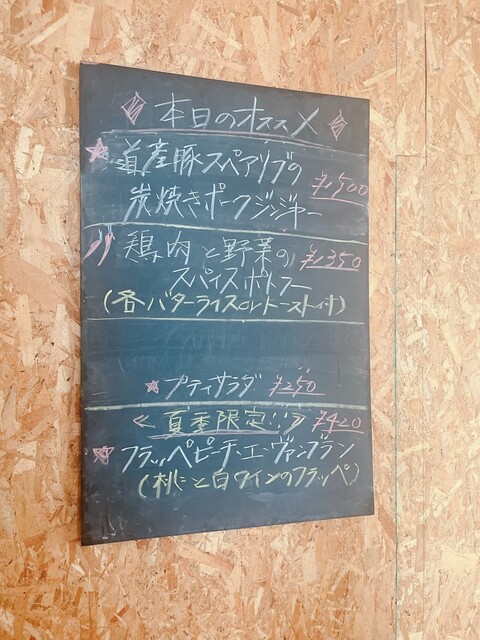 本日のオススメ
道産豚スペアリブの
炭焼きポークジンジャー ¥1500
鶏肉と野菜の ¥1350
スパイスポトフー
(各バターライスorトースト付)
プティサラダ ¥250
《夏季限定!!》 ¥420
フラッペピーチ・エ・ヴァンブラン
(桃と白ワインのフラッペ)